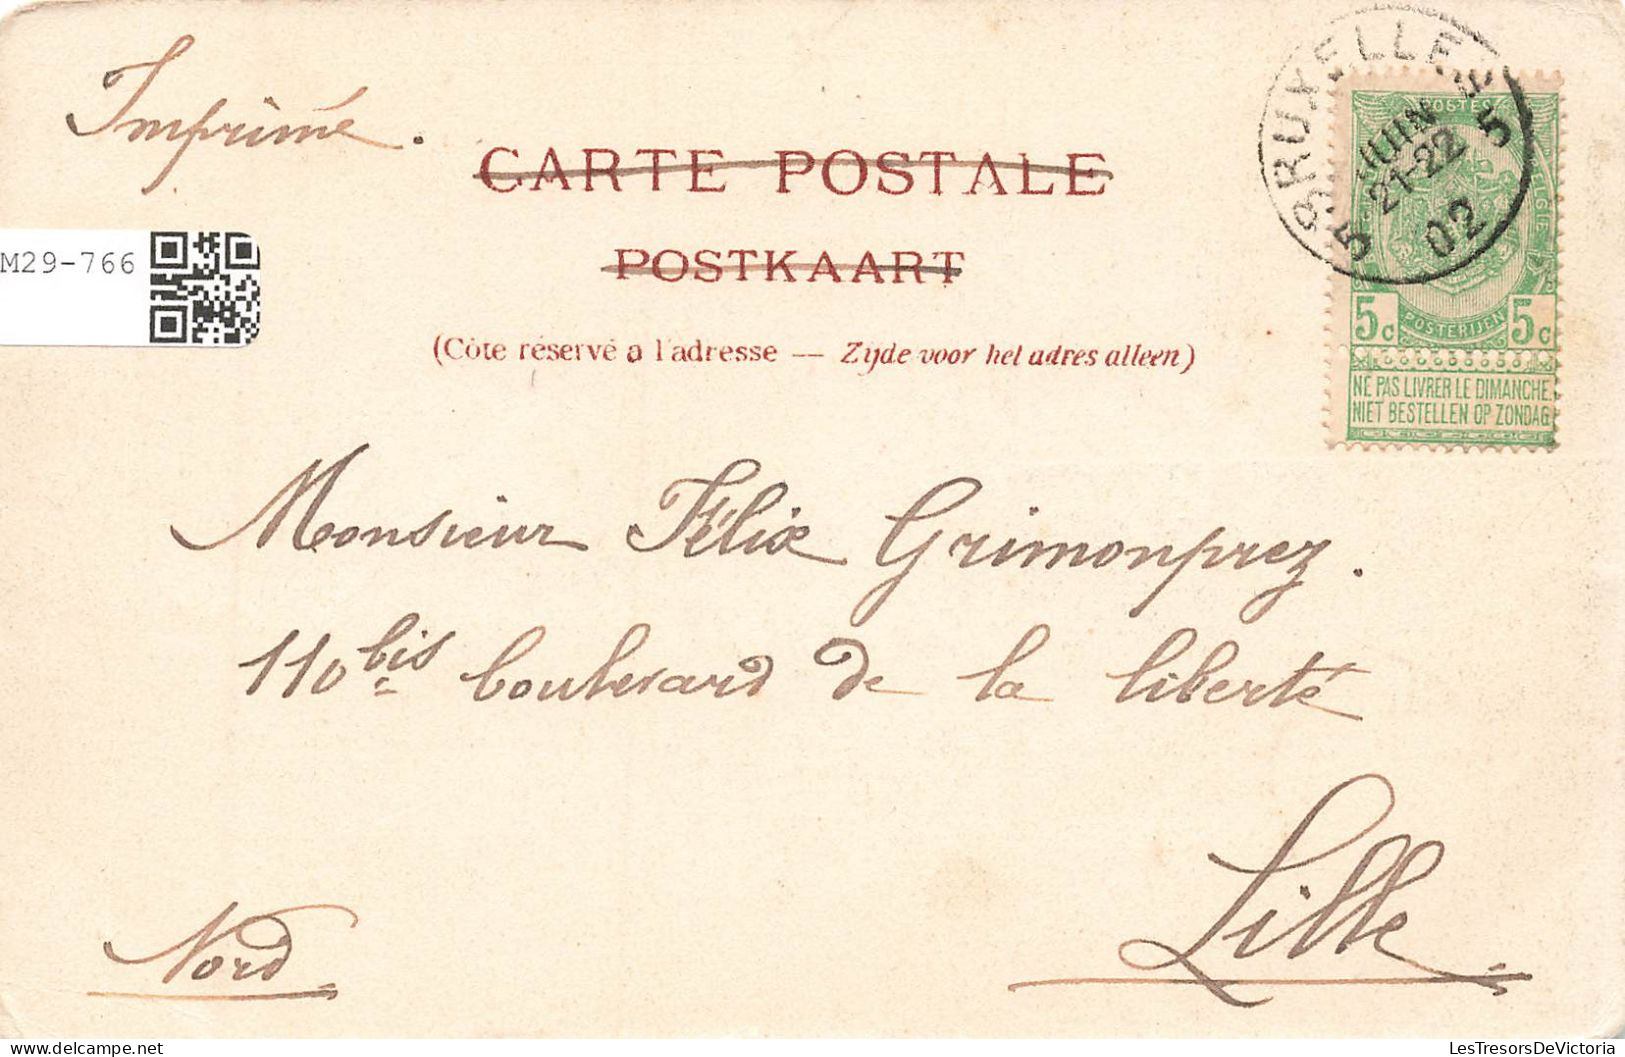 Imprimé.
CARTE POSTALE
POSTKAART
(Côte réservé a l'adresse — Zijde voor het adres alleen)
M29-766
BRUXELLES 5
5 JUIN
21-22
02
POSTES
BELGIQUE
5c POSTERIJEN 5c
NE PAS LIVRER LE DIMANCHE
NIET BESTELLEN OP ZONDAG
Monsieur Félix Grimonprez.
110 bis boulevard de la liberté
Lille
Nord
LesTresorsDeVictoria